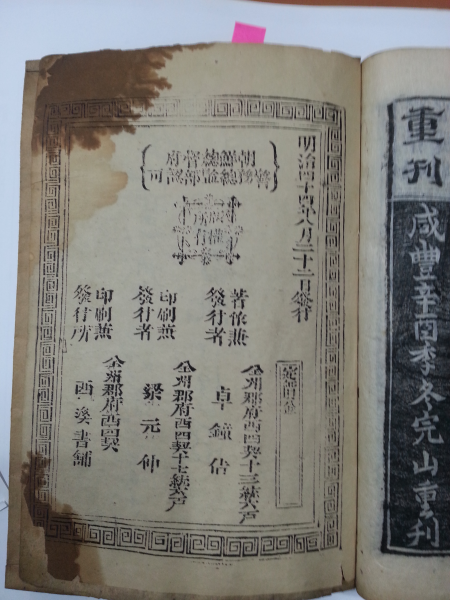 重刊
咸豊辛酉季冬完山重刊
明治四十四年八月二十二日發行
朝鮮總督府
警務總監部認可
版權
所有
著作兼
發行者
全州郡府西四契十三統八戶
卓鍾佶
印刷兼
發行者
全州郡府西四契十七統八戶
梁元仲
印刷兼
發行所
全州郡府西四契
西溪書鋪